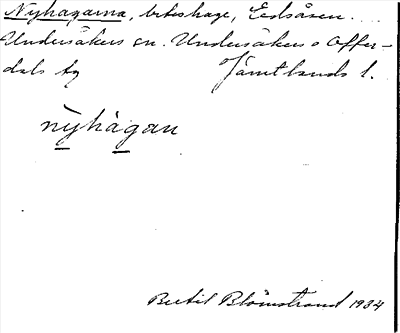 Nyhagarna, beteshage, Edsåsen.
Undersåkers sn. Undersåkers o Offer-
dals tg Jämtlands l.
nỳhàgan
Bertil Blomstrand 1934